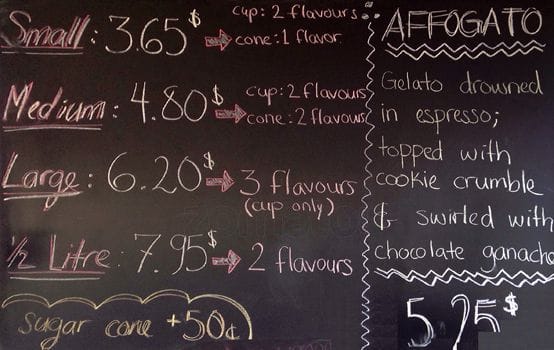 Small: 3.65$ → cup: 2 flavours.
cone: 1 flavor.
Medium: 4.80$ → cup: 2 flavours
cone: 2 flavours
Large: 6.20$ → 3 flavours
(cup only)
½ Litre: 7.95$ → 2 flavours
sugar cone +50¢
AFFOGATO
Gelato drowned
in espresso;
topped with
cookie crumble
& swirled with
chocolate ganache
5.25$